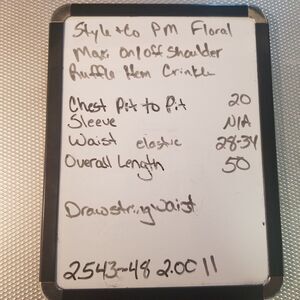 Style & Co PM Floral
Maxi On/off Shoulder
Ruffle Hem Crinkle
Chest Pit to Pit 20
Sleeve N/A
Waist elastic 28-34
Overall Length 50
Drawstring Waist
2543-48 2.00 11